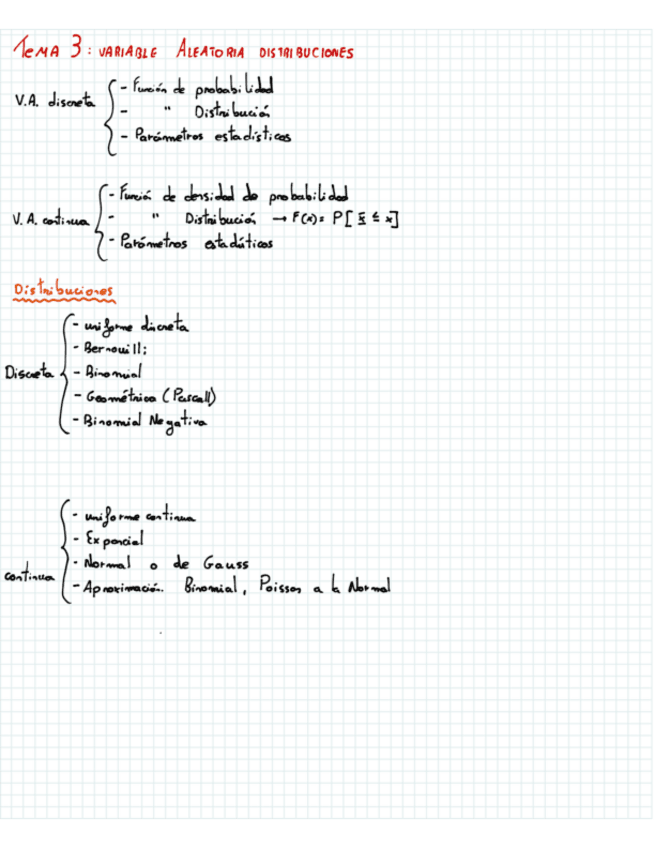 TEMA 3: VARIABLE ALEATORIA DISTRIBUCIONES
- Función de probabilidad
V.A. discreta
- " Distribución
- Parámetros estadísticos
- Función de densidad de probabilidad
V.A. continua
- " Distribución → F(x) = P[ X ≤ x]
- Parámetros estadísticos
Distribuciones
- uniforme discreta
- Bernouilli
Discreta - Binomial
- Geométrica (Pascall)
- Binomial Negativa
- uniforme continua
- Exponcial
- Normal o de Gauss
continua
- Aproximación. Binomial, Poisson a la Normal